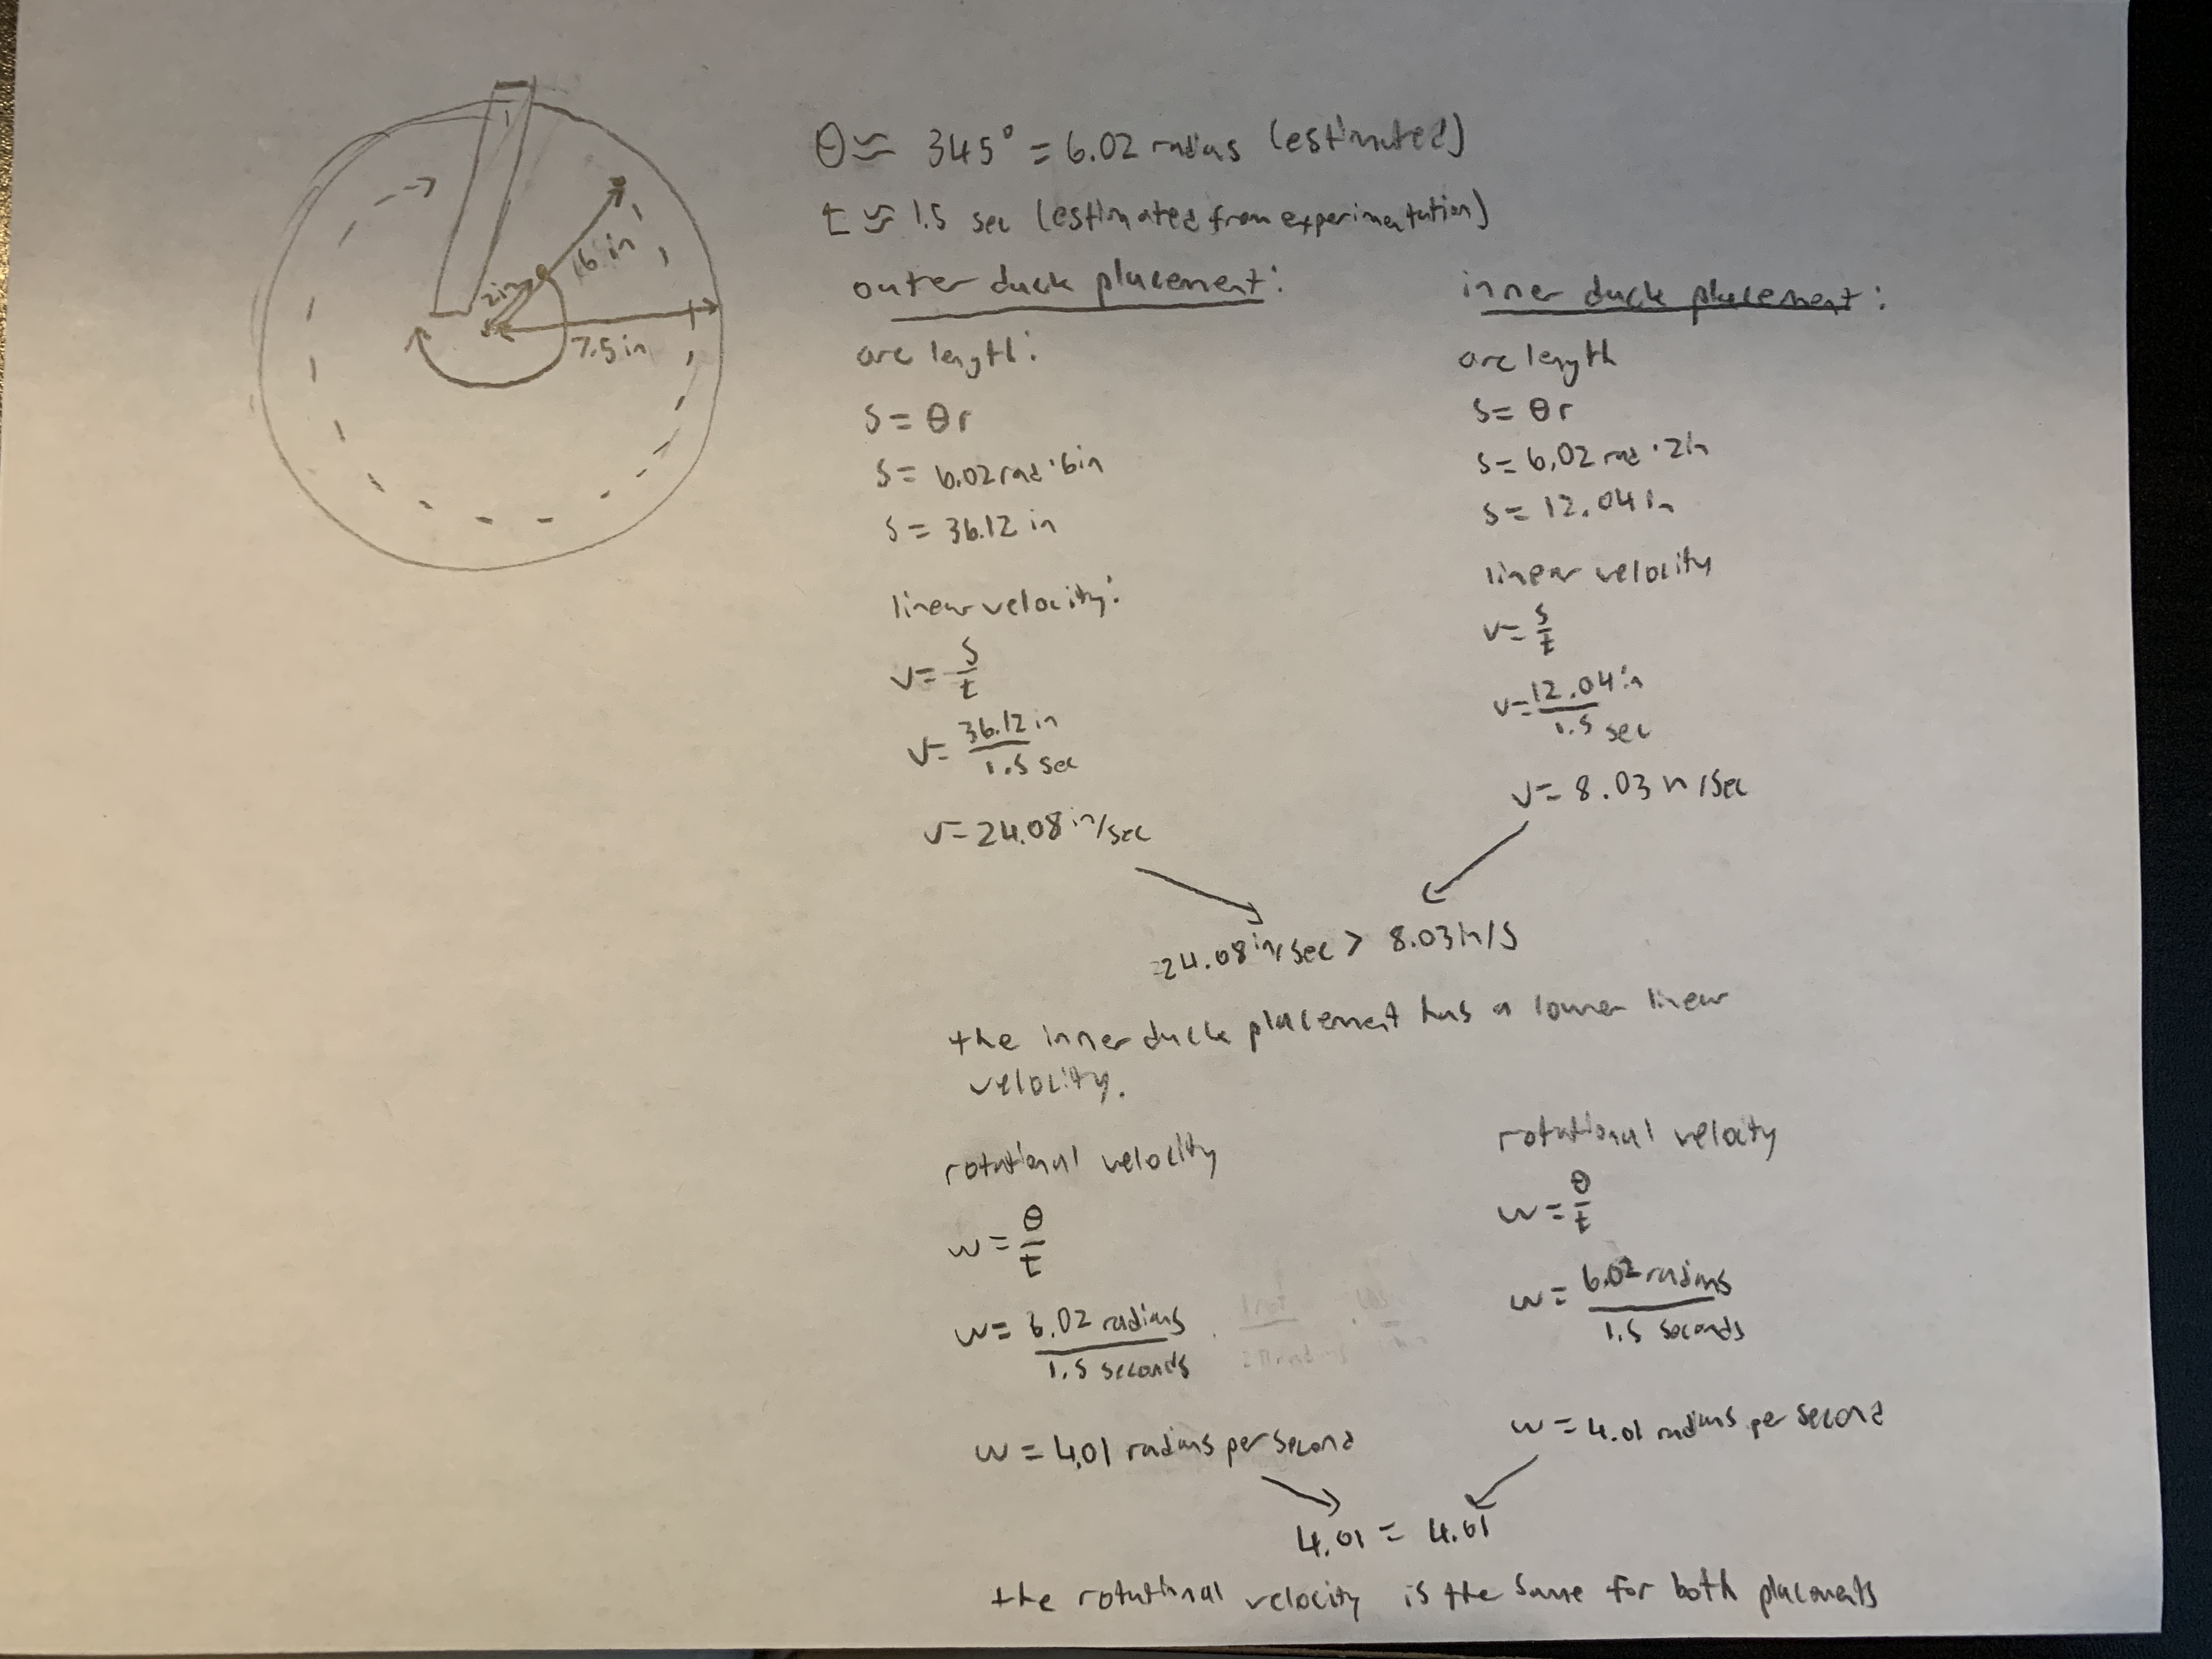 θ ≈ 345° = 6.02 radians (estimated)
t ≈ 1.5 sec (estimated from experimentation)
2in
6 in
7.5 in
outer duck placement:
arc length:
S = θr
S = 6.02 rad · 6in
S = 36.12 in
linear velocity:
v = S/t
v = 36.12 in / 1.5 sec
v = 24.08 in/sec
inner duck placement:
arc length
S = θr
S = 6.02 rad · 2in
S = 12.04 in
linear velocity
v = S/t
v = 12.04 in / 1.5 sec
v = 8.03 in/sec
24.08 in/sec > 8.03 in/s
the inner duck placement has a lower linear
velocity.
rotational velocity
w = θ/t
w = 6.02 radians / 1.5 seconds
w = 4.01 radians per second
rotational velocity
w = θ/t
w = 6.02 radians / 1.5 seconds
w = 4.01 radians per second
4.01 = 4.01
the rotational velocity is the same for both placements